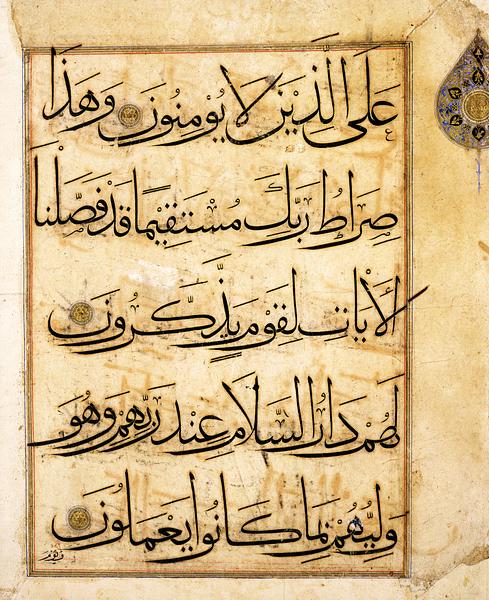 عَلَى الَّذِينَ لَا يُؤمِنُونَ وَهَذَا
صِرَاطُ رَبِّكَ مُستَقِيمًا قَد فَصَّلنَا
الأيَاتِ لِقَومٍ يَذَّكَّرُونَ
لَهُم دَارُ السَّلَامِ عِندَ رَبِّهِم وَهُوَ
وَلِيُّهُم بِمَا كَانُوا يَعمَلُونَ
ويوم